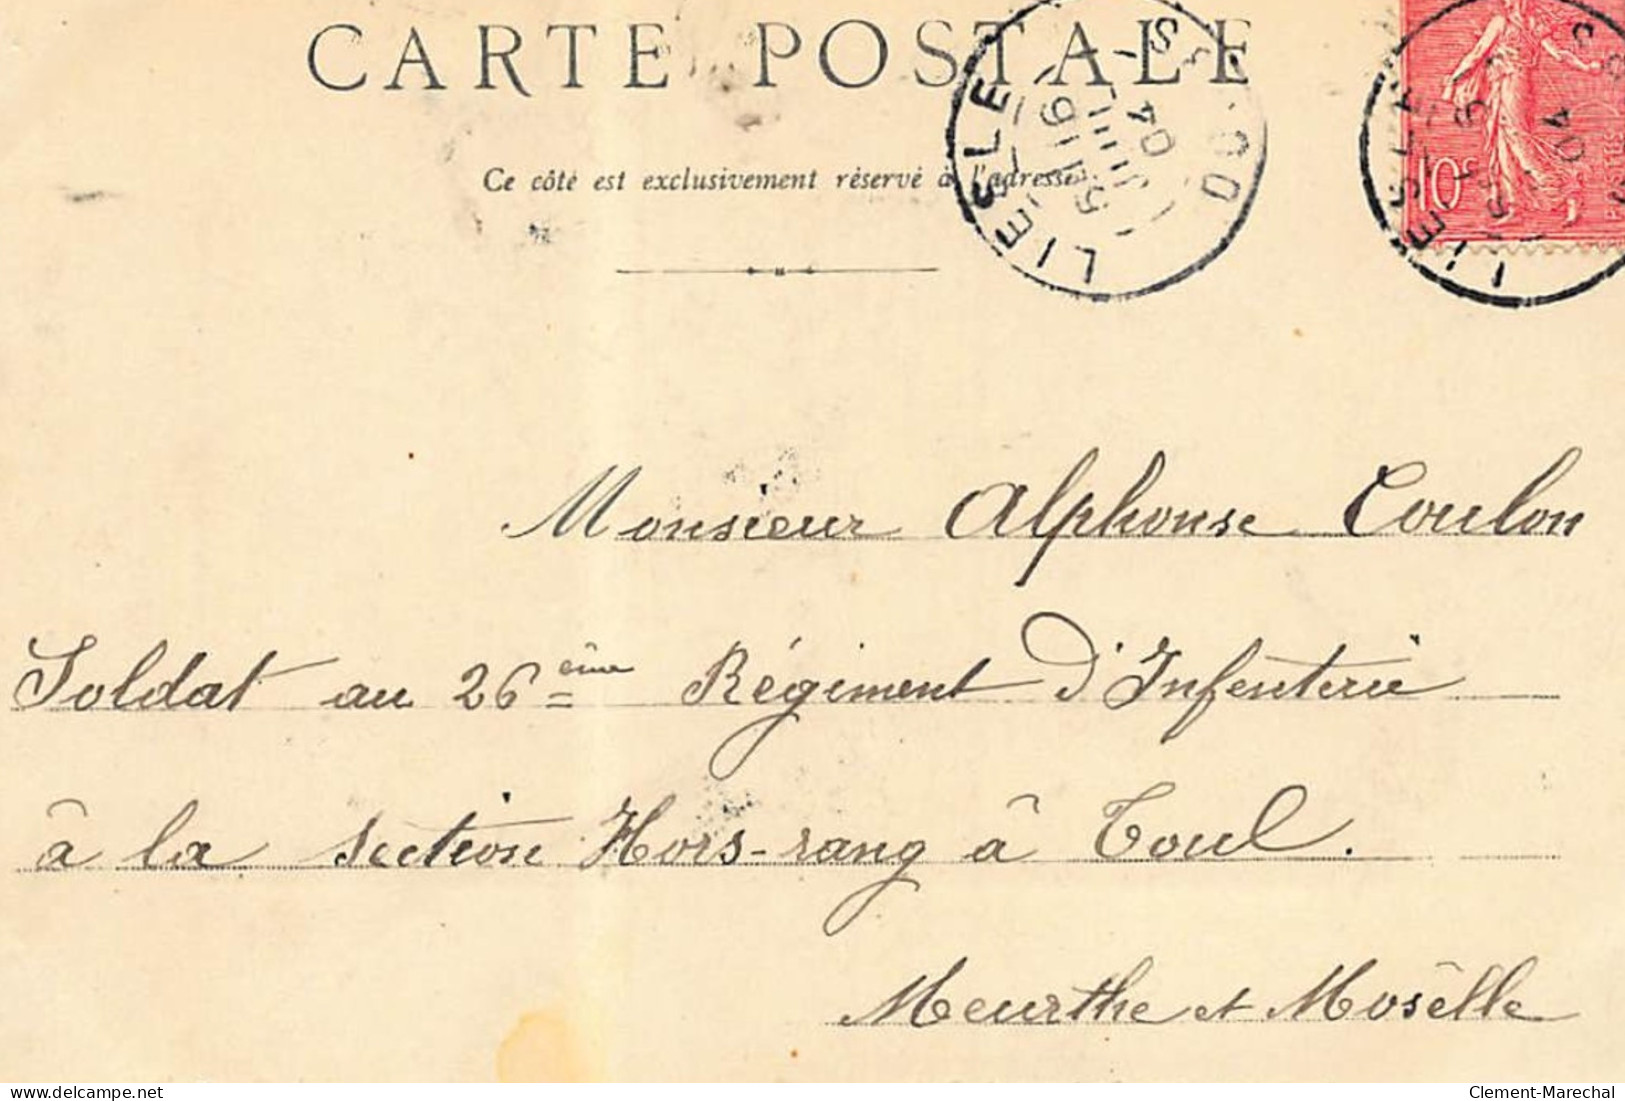 CARTE POSTALE
Ce côté est exclusivement réservé à l'adresse
LIESLE
16
04
DOUBS
10c
POSTES
LIESLE
04
Monsieur Alphonse Coulon
Soldat au 26ème Régiment d'Infenterie
à la section Hors-rang à Toul.
Meurthe et Mosëlle
www.delcampe.net
Clement-Marechal